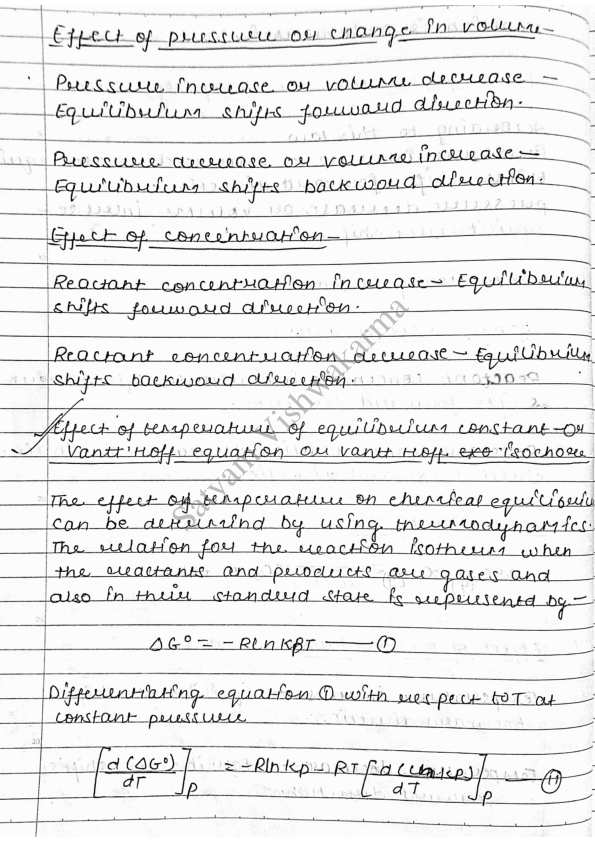 Effect of pressure or change in volume-
Pressure increase or volume decrease -
Equilibrium shifts forward direction.
Pressure decrease or volume increase-
Equilibrium shifts backword direction.
Effect of concentration-
Reactant concentration increase- Equilibrium
shifts forward direction.
Reactant concentration decrease- Equilibrium
shifts backword direction.
Effect of temperature of equilibrium constant- Or
Vantt' Hoff equation or vantt Hoff exo isochore
The effect of temperature on chemical equilibriu
can be determind by using thermodynamics.
The relation for the reaction isotherm when
the reactants and products are gases and
also in their standerd state is represented by-
ΔG° = -RlnKpT — ①
Differentiating equation ① with respect to T at
constant pressure
[d(ΔG°)/dT]p = -RlnKp - RT [d(lnKp)/dT]p — ⑪
Satyam Vishwakarma